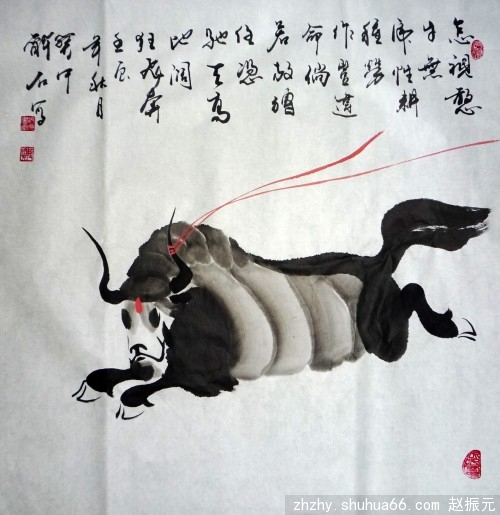 怎視憨
牛無
虎性耕
種勞
作豈違
命倘
若放韁
任憑
馳天高
地闊
狂飛奔
壬辰
年秋月
石寫
zhzhy.shuhua66.com 赵振元